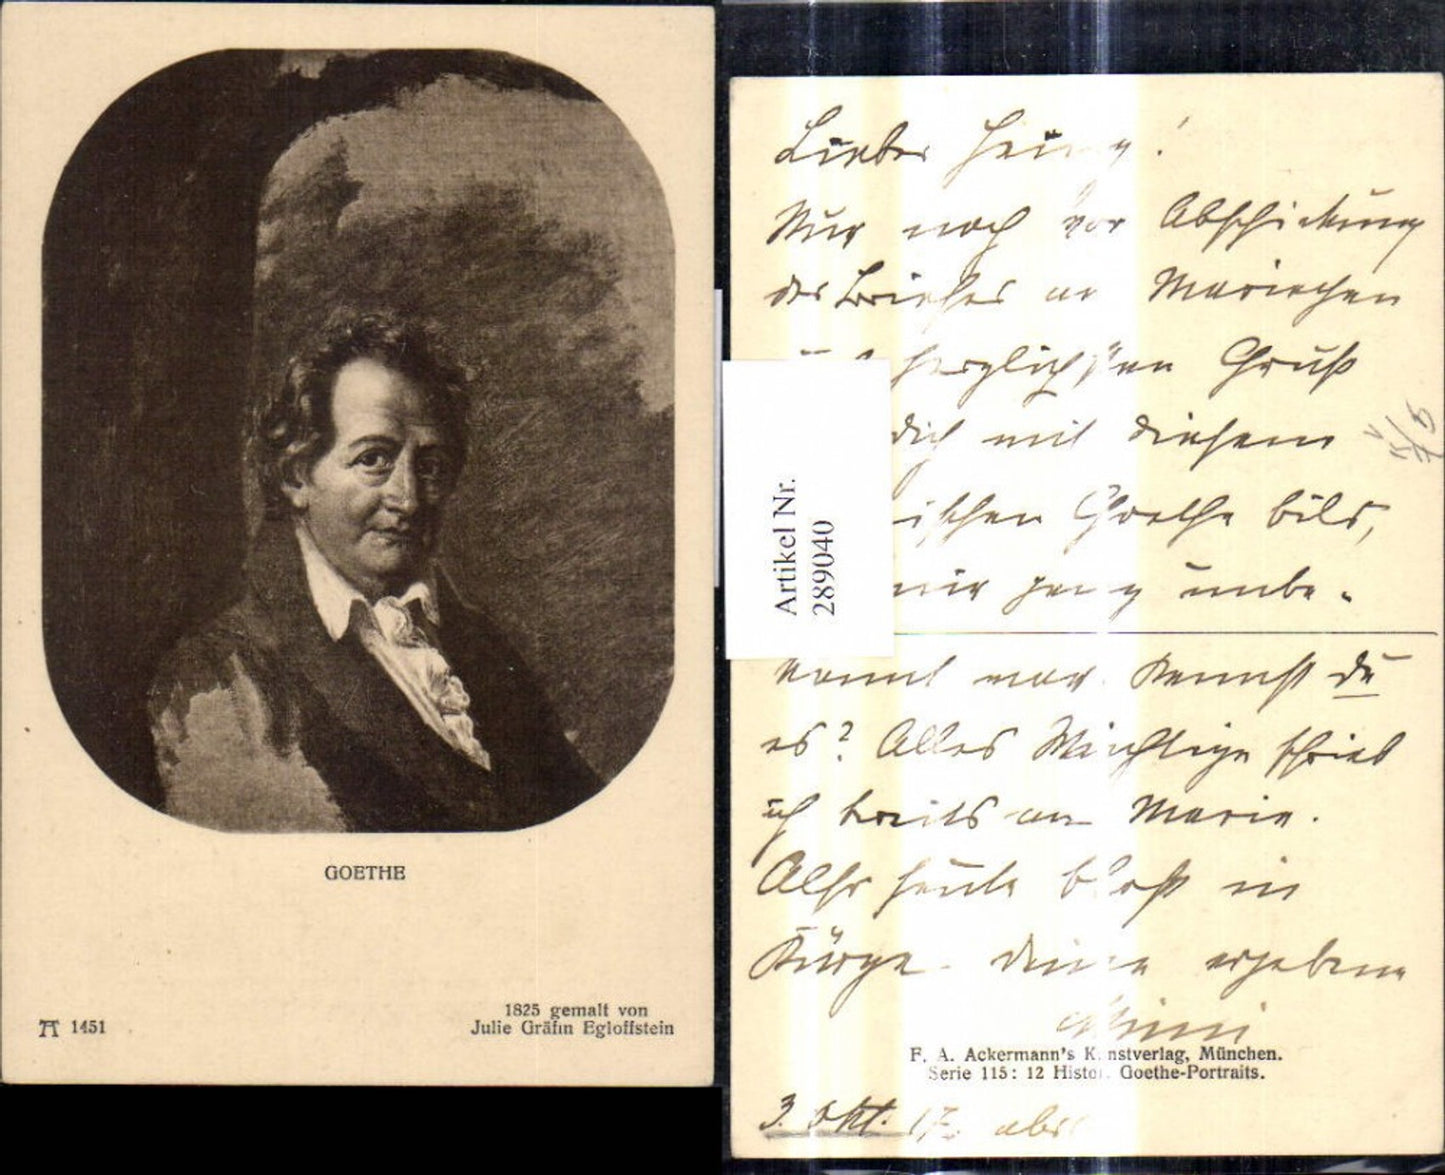 GOETHE
A 1451
1825 gemalt von
Julie Gräfin Egloffstein
Artikel Nr.
289040
Lieber
Nur noch vor Abschickung
des Briefes an Mariechen
herzlichsten Gruß
dich mit diesem
Goethe bild,
mir ganz unbe-
kannt war. Kennst du
es? Alles Wichtige schrieb
ich bereits an Marie.
Also heute bloß in
Kürze. Deine ergebene
Mimi
F. A. Ackermann's K nstverlag, München.
Serie 115: 12 Histo . Goethe-Portraits.
3. Okt. 17.